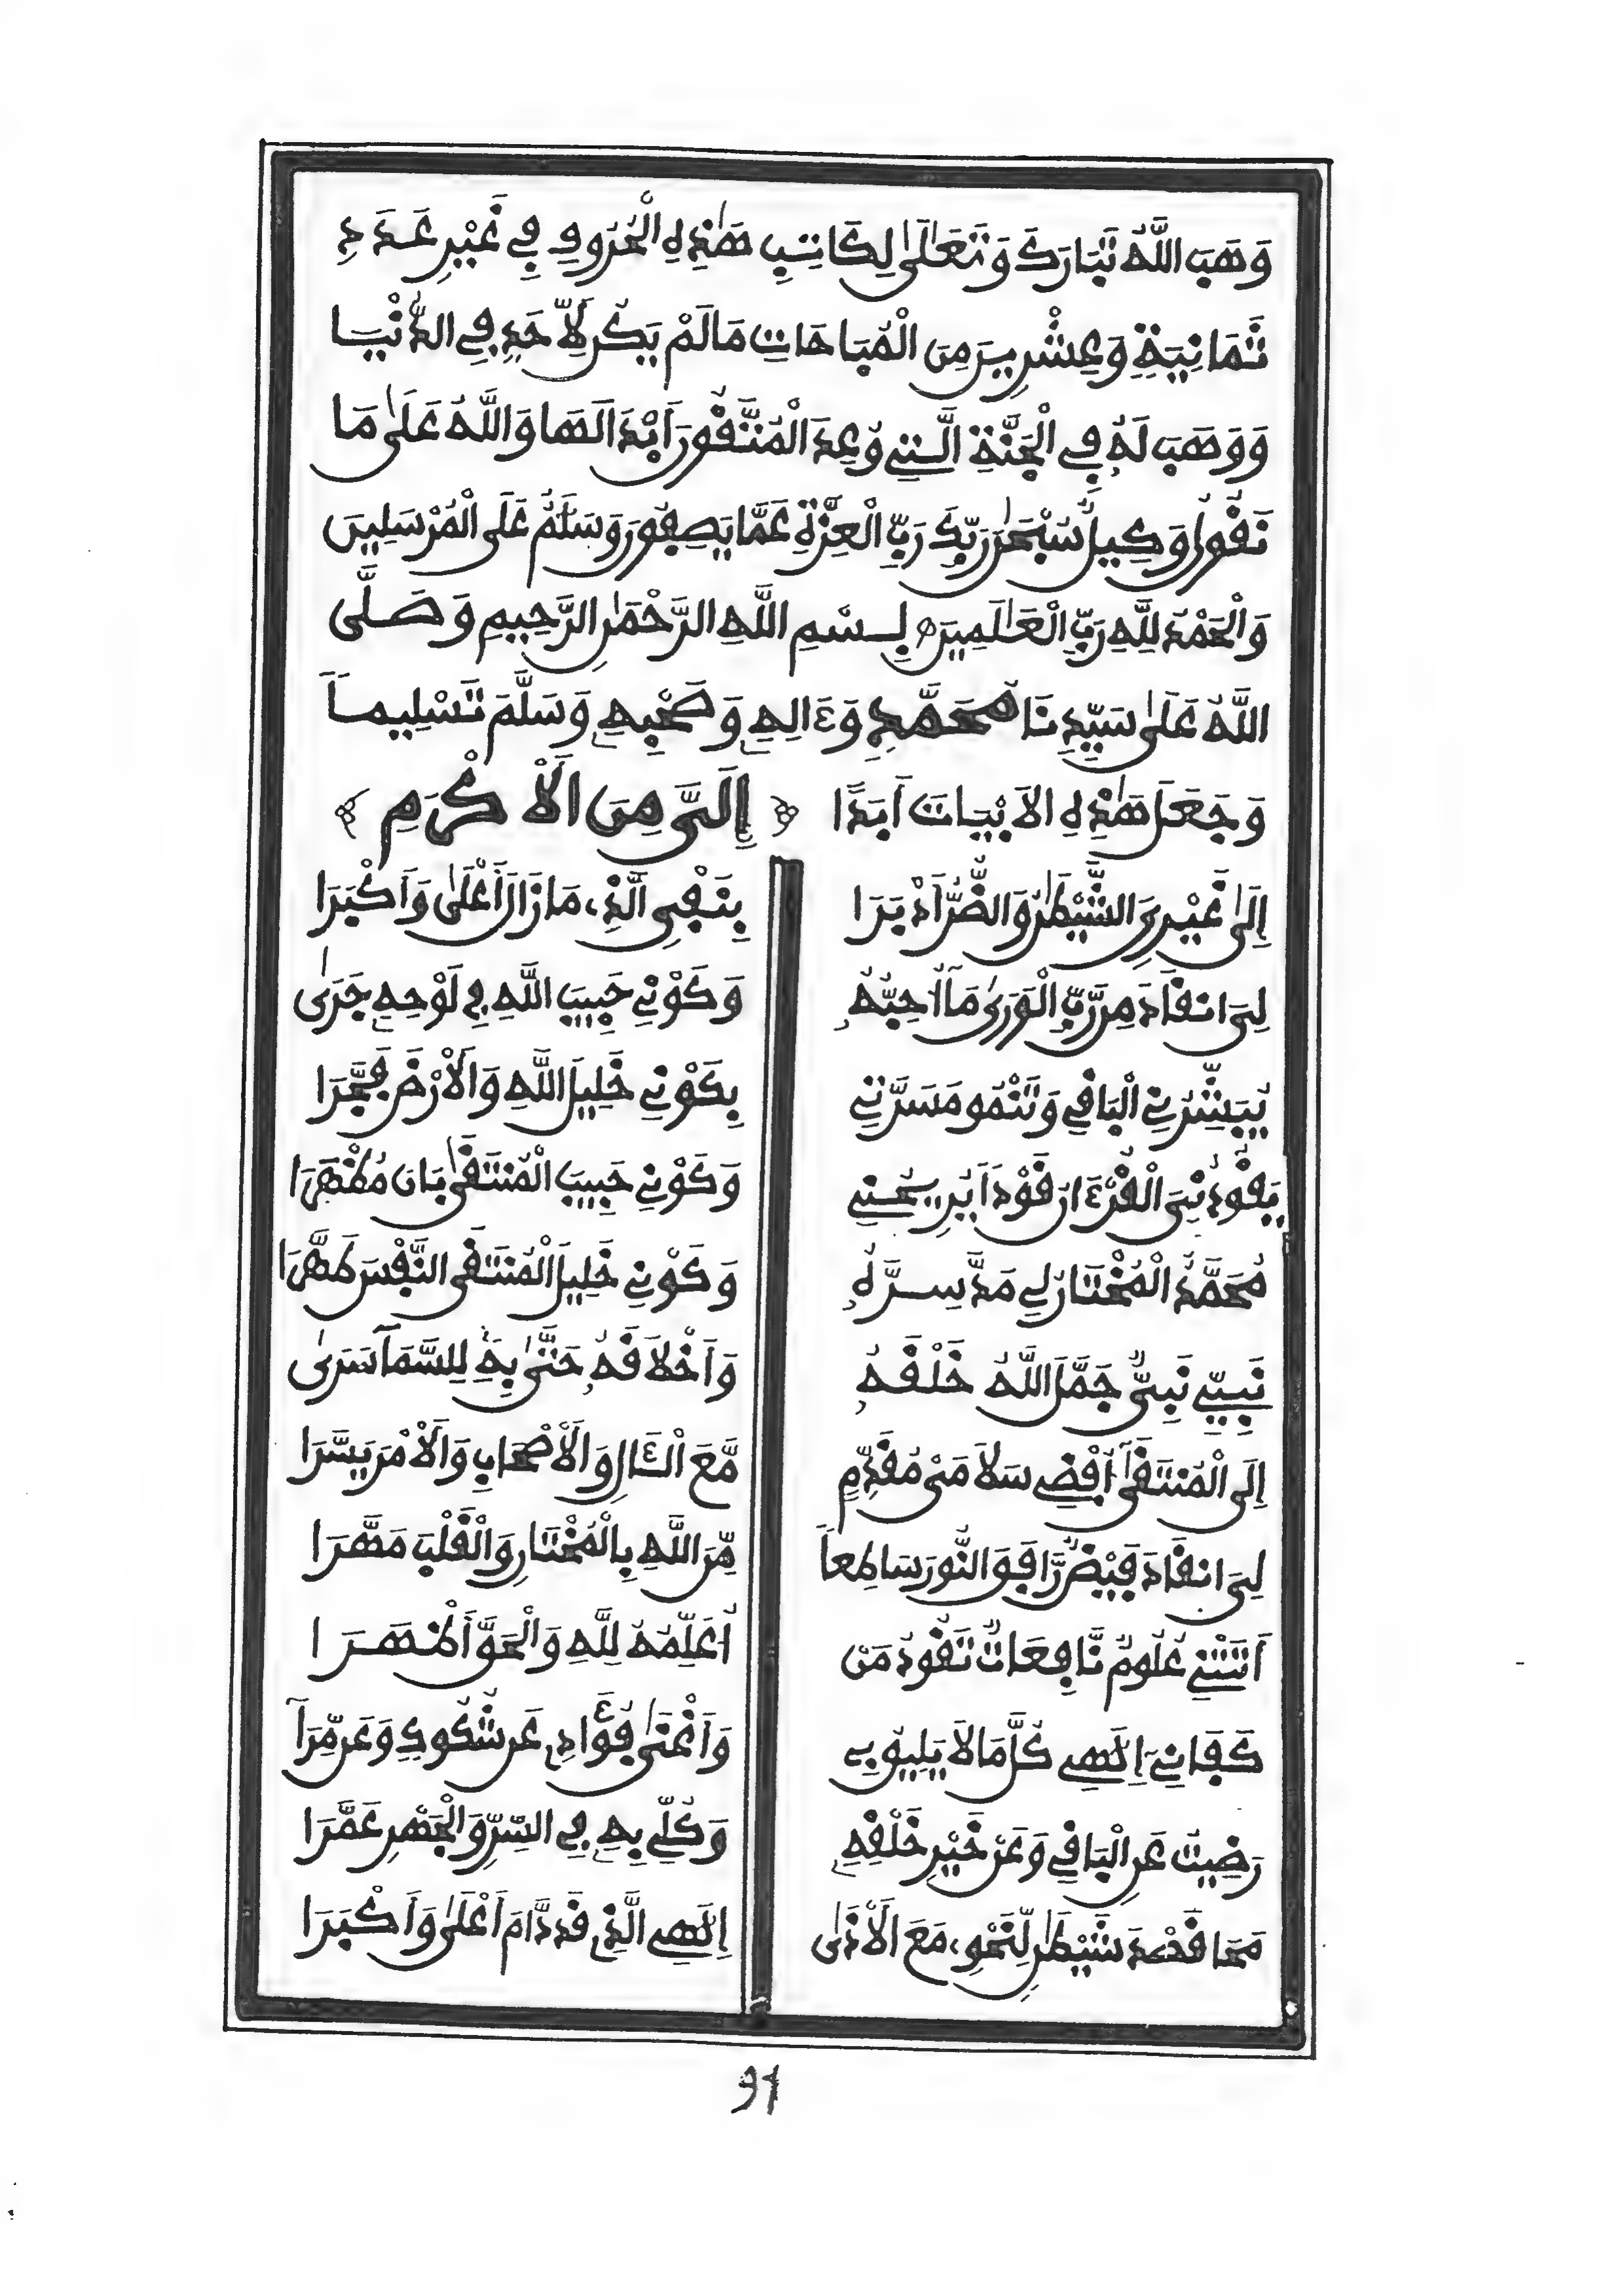 وَهَبَ اللَّهُ تَبَارَكَ وَتَعَٰلَىٰ لِكَاتِبِ هَٰذِهِ الْحُرُوفِ فِي غَيْرِ عَدَدِ
ثَمَانِيَةٍ وَعِشْرِينَ مِنَ الْمُبَاحَاتِ مَا لَمْ يَكُن لِأَحَدٍ فِي الدُّنْيَا
وَوَهَبَ لَهُ فِي الْجَنَّةِ الَّتِي وُعِدَ الْمُتَّقُونَ أَبْدَالَهَا وَاللَّهُ عَلَىٰ مَا
نَقُولُ وَكِيلٌ سُبْحَٰنَ رَبِّكَ رَبِّ الْعِزَّةِ عَمَّا يَصِفُونَ وَسَلَٰمٌ عَلَى الْمُرْسَلِينَ
وَالْحَمْدُ لِلَّهِ رَبِّ الْعَٰلَمِينَ بِسْمِ اللَّهِ الرَّحْمَٰنِ الرَّحِيمِ وَصَلَّى
اللَّهُ عَلَىٰ سَيِّدِنَا مُحَمَّدٍ وَءَالِهِ وَصَحْبِهِ وَسَلَّمَ تَسْلِيماً
وَجَعَلَ هَٰذِهِ الأَبْيَاتَ أَبَدًا إِلَىَّ مِنَ الْأَكْرَمِ
إِلَىٰ غَيْرِيَ الشَّيْطَٰنُ وَالضُّرُّ أَدْبَرَا بِنَفْيِ الَّذِي مَا زَالَ أَعْلَىٰ وَأَكْبَرَا
لِيَ انقَادَ مِن رَّبِّ الْوَرَىٰ مَا أُحِبُّهُ وَكَوْنِي حَبِيبَ اللَّهِ فِي لَوْحِهِ جَرَىٰ
يُبَشِّرُنِي الْبَاقِي وَتَنْمُو مَسَرَّتِي بِكَوْنِي خَلِيلَ اللَّهِ وَالْأَرْضَ فَجَّرَا
يَقُودُنِيَ الْقُرْءَانُ قَوْدَ وَكَوْنِي حَبِيبَ الْمُنتَقَىٰ بَانَ مُظْهَرَا
مُحَمَّدٌ الْمُخْتَارُ لِي مَدَّ سِرَّهُ وَكَوْنِي خَلِيلَ الْمُنتَقَى النَّفْسَ طَهَّرَا
نَبِيِّي نَبِيٌّ جَمَّلَ اللَّهُ خَلْقَهُ وَأَخْلَاقَهُ حَتَّىٰ بِهِ لِلسَّمَا سَرَىٰ
إِلَى الْمُنتَقَىٰ أُفْضِي سَلَامَيْ مُقَدِّمٍ مَّعَ الْـَٔالِ وَالْأَصْحَابِ وَالْأَمْرَ يَسَّرَا
لِيَ انقَادَ فَيْضٌ رَّافَقَ النُّورَ سَاطِعاً مِّنَ اللَّهِ بِالْمُخْتَارِ وَالْقَلْبَ مَهَّرَا
أَتَتْنِي عُلُومٌ نَّافِعَاتٌ تَقُودُ مَنْ أُعَلِّمُهُ لِلَّهِ وَالْحَقَّ أَظْهَرَا
كَفَانِي إِلَٰهِي كُلَّ مَا لَا يَلِيقُ بِي وَأَغْنَىٰ فُؤَادِي عَن شُكُوكٍ وَعَن مِّرَا
رَضِيتُ عَنِ الْبَاقِي وَعَنْ خَيْرِ خَلْقِهِ وَكُلِّي بِهِ فِي السِّرِّ وَالْجَهْرِ عَمَّرَا
مَحَا قَصْدَ شَيْطَٰنٍ لِّنَحْوِي مَعَ الْأَذَىٰ إِلَٰهِي الَّذِي قَد دَّامَ أَعْلَىٰ وَأَكْبَرَا
91